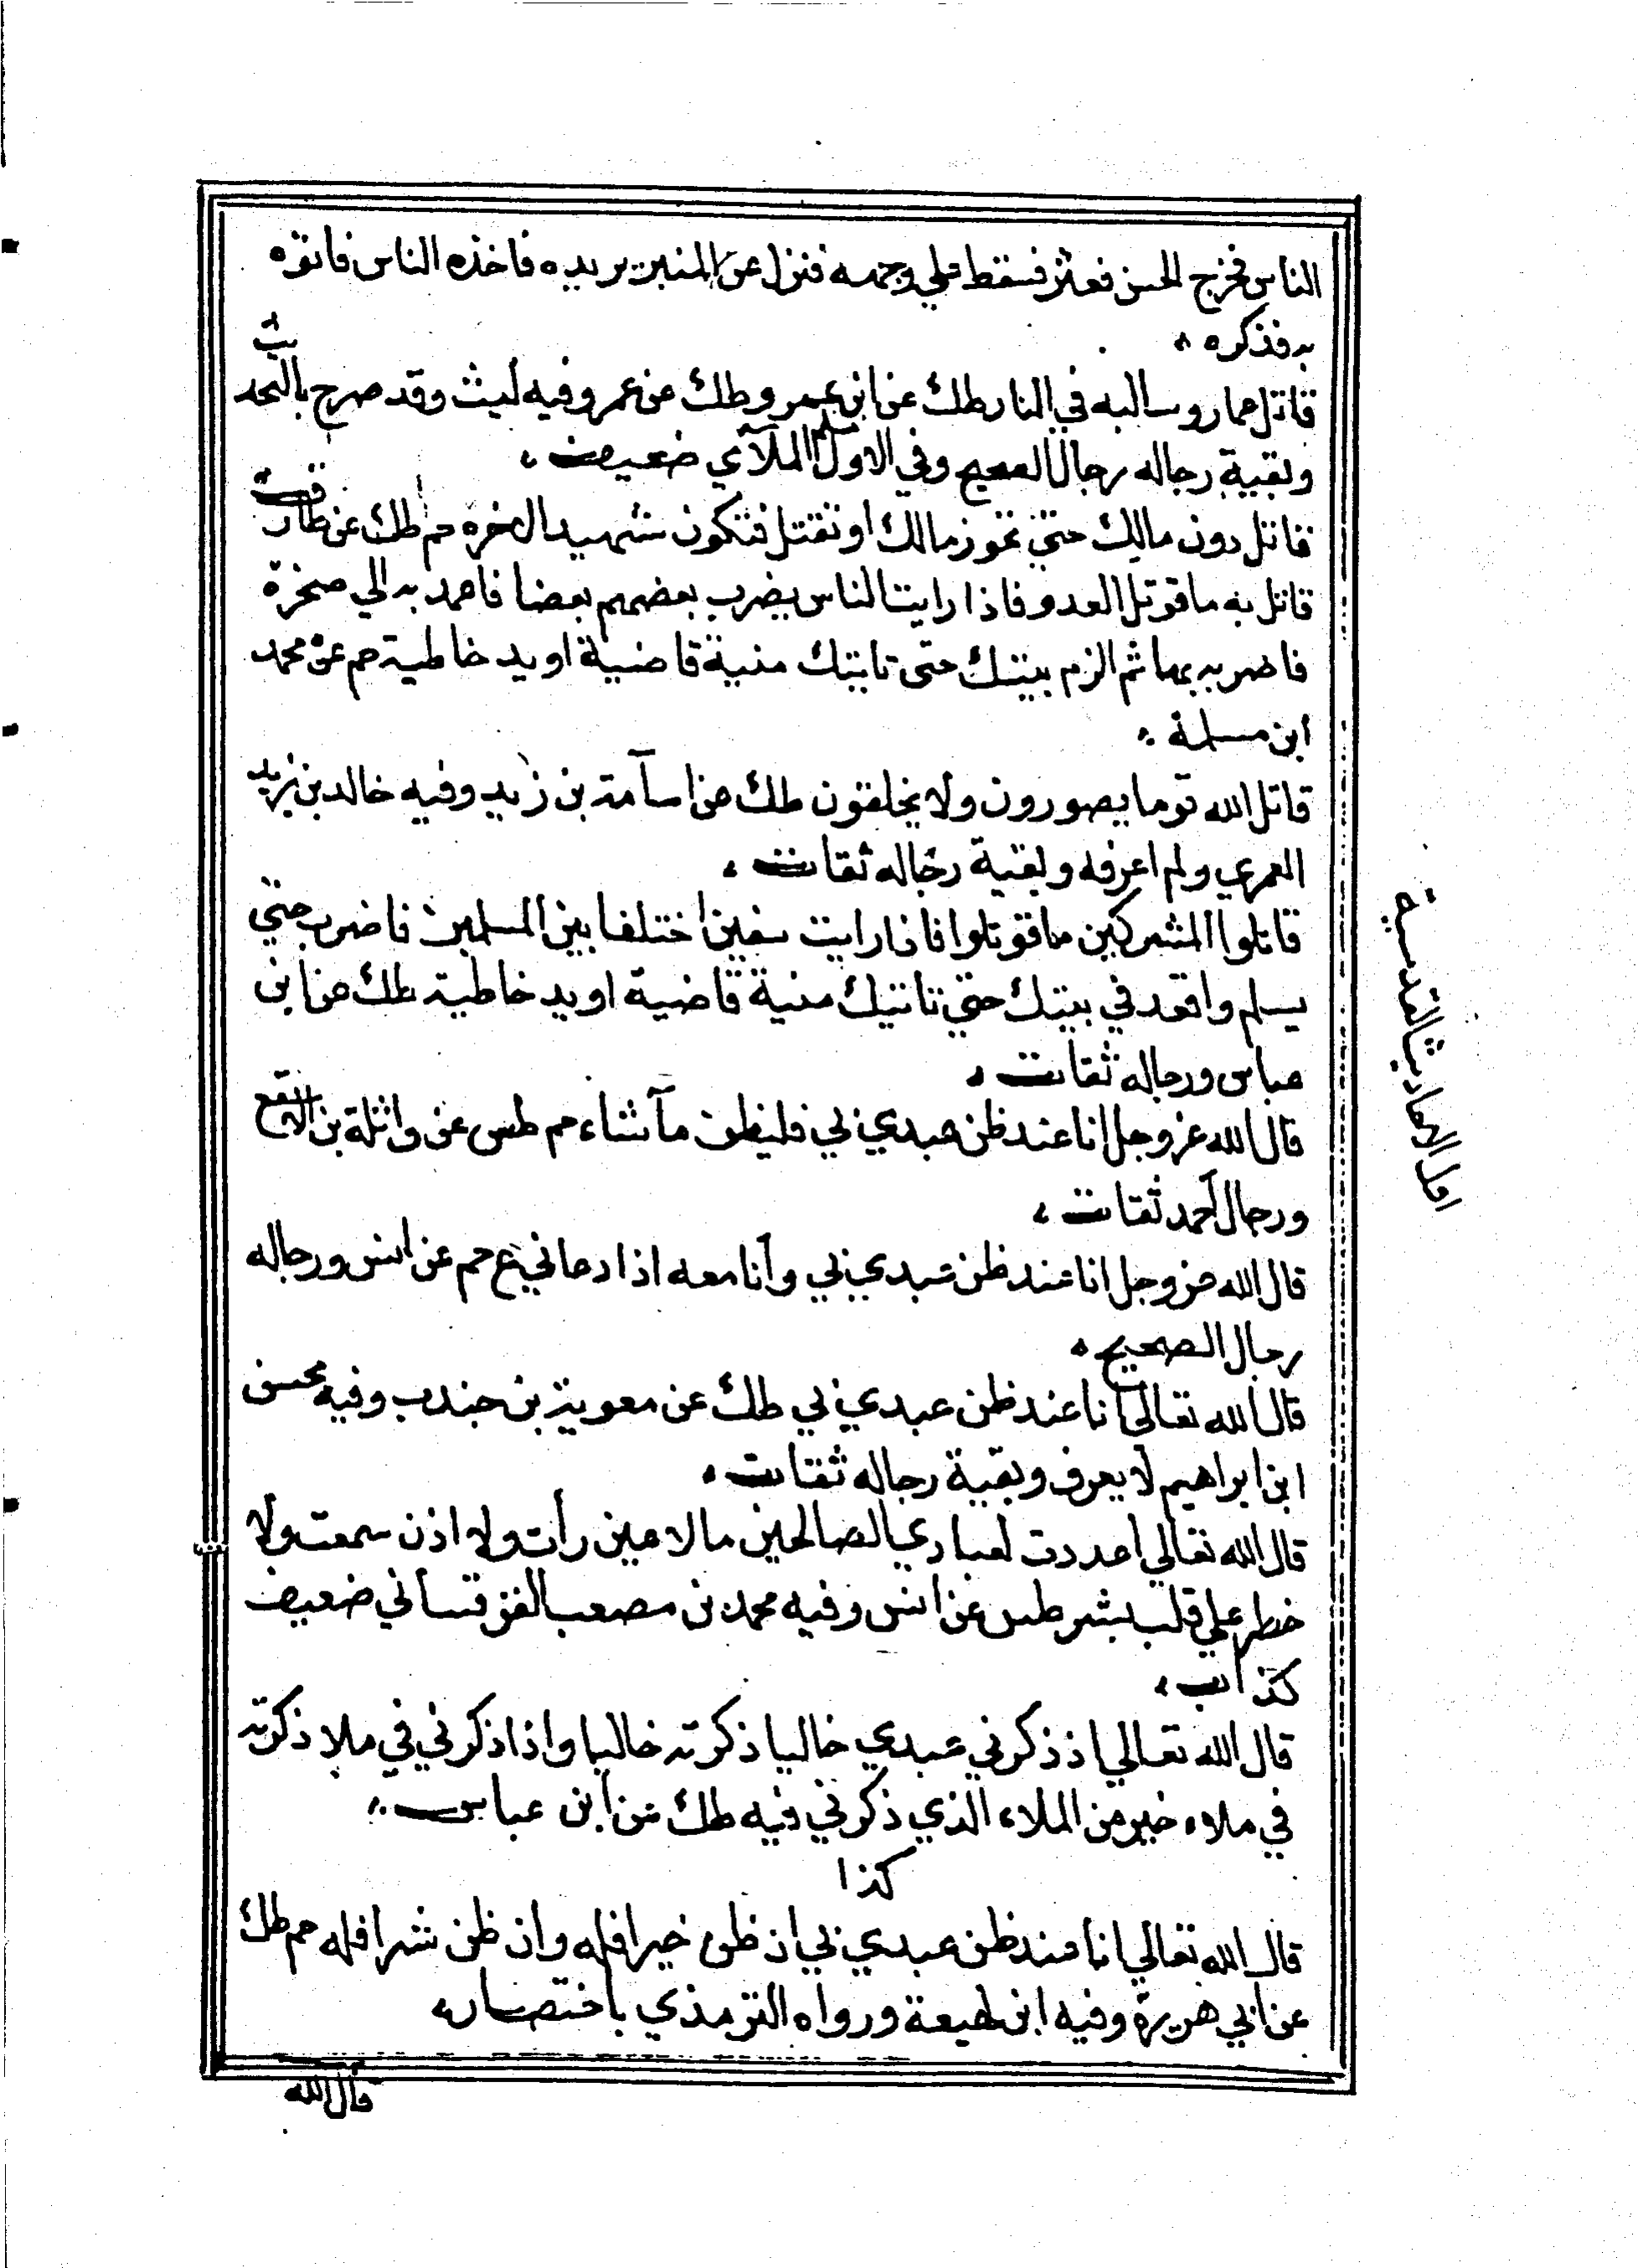 الناس فخرج الحسن فعثر فسقط علي وجهه فنزل عن المنبر يريده فاخذه الناس فاتوه
به فذكره
قاتل عمار وسالبه في النار طك عن ابن عمرو طك عن عمرو فيه ليث وقد صرح بالتحديث
وبقية رجاله رجال الصحيح وفي الاول مسلم الملآي ضعيف
قاتل دون مالك حتي تحوز مالك او تقتل فتكون شهيد الاخره حم طك عن مخارق
قاتل به ما قوتل العدو فاذا رايت الناس يضرب بعضهم بعضا فاعمد به الي صخرة
فاضربه بها ثم الزم بيتك حتى تاتيك منية قاضية او يد خاطية حم عن محمد
ابن مسلمة
قاتل الله قوما يصورون ولا يخلقون طك عن اسامة بن زيد وفيه خالد بن يزيد
العمري ولم اعرفه وبقية رجاله ثقات
قاتلوا المشركين ما قوتلوا فاذا رايت سفين اختلفا بين المسلمين فاضرب حتي
يسلم واقعد في بيتك حتي تاتيك منية قاضية او يد خاطية طك عن ابن
عباس ورجاله ثقات
قال الله عز وجل انا عند ظن عبدي بي فليظن مآ شاء حم طس عن واثلة بن الاسقع
ورجال أحمد ثقات
قال الله عز وجل انا عند ظن عبدي بي وأنا معه اذا دعاني ع حم عن انس ورجاله
رجال الصحيح
قال الله تعالى أنا عند ظن عبدي بي طك عن معوية بن حندب وفيه محسن
ابن ابراهيم لا يعرف وبقية رجاله ثقات
قال الله تعالي اعددت لعبادي الصالحين مالا عين رأت ولا اذن سمعت ولا
خطر علي قلب بشر طس عن انس وفيه محمد بن مصعب القرقساني ضعيف
كذاب
قال الله تعالي اذ ذكرني عبدي خاليا ذكرته خاليا واذا ذكرني في ملا ذكرته
في ملاء خير من الملاء الذي ذكرني فيه طك عن ابن عباس
كذا
قال الله تعالي انا عند ظن عبدي بي ان ظن خيرا فله وان ظن شرا فله حم طك
عن ابي هريرة وفيه ابن لهيعة ورواه الترمذي باختصار
قال الله
اول الاحاديث القدسية